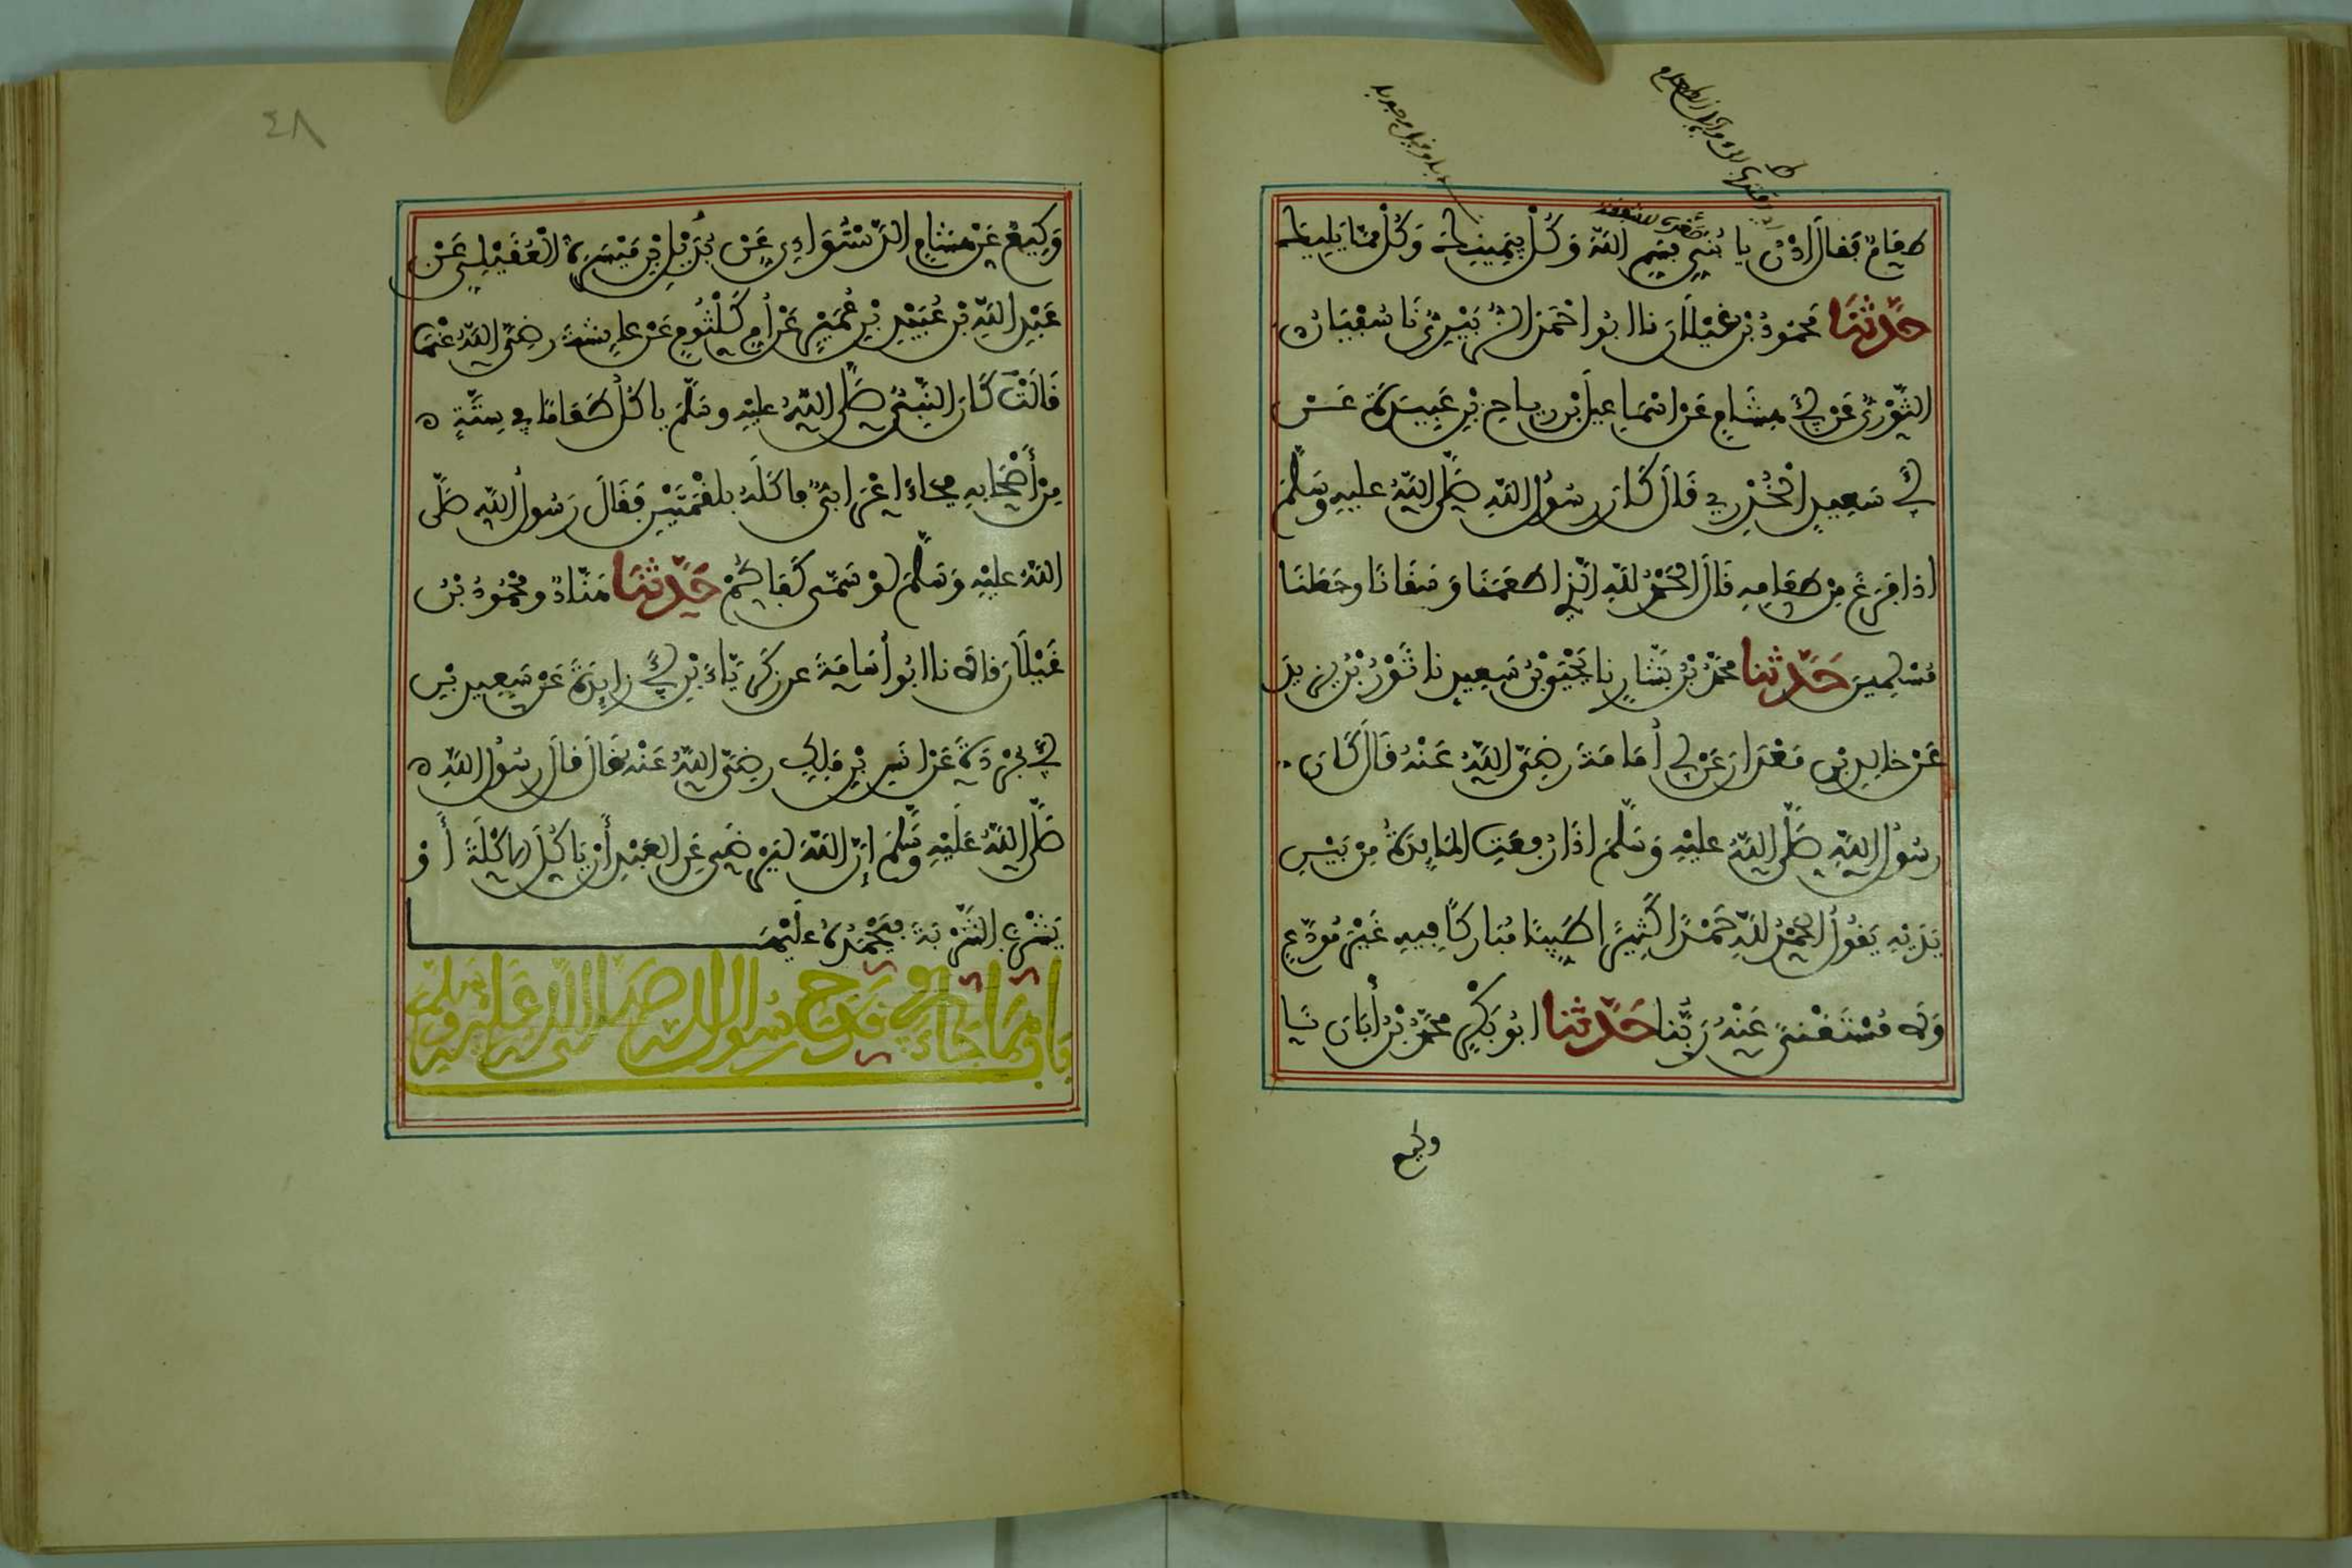 طعام فقال ادن يا بني فسم الله وكل بيمينك وكل مما يليك
حدثنا محمود بن غيلان نا ابو احمد الزبيري نا سفيان
الثوري عن ابي هشام عن اسماعيل بن رياح بن عبيدة عن
ابي سعيد الخدري قال كان رسول الله صلى الله عليه وسلم
اذا فرغ من طعامه قال الحمد لله الذي اطعمنا وسقانا وجعلنا
مسلمين حدثنا محمد بن بشار نا يحيى بن سعيد نا ثور بن يزيد
عن خالد بن معدان عن ابي أمامة رضي الله عنه قال كان
رسول الله صلى الله عليه وسلم اذا رفعت المايدة من بين
يديه يقول الحمد لله حمدا كثيرا طيبا مباركا فيه غير مودع
ولا مستغنى عنه ربنا حدثنا ابو بكر محمد بن أبان نا
وكيع
٤٨
وكيع عن هشام الدستواءي عن بديل بن ميسرة العقيلي عن
عبد الله بن عبيد بن عمير عن أم كلثوم عن عايشة رضي الله عنها
قالت كان النبي صلى الله عليه وسلم ياكل طعاما في ستة
من أصحابه فجاء اعرابي فاكله بلقمتين فقال رسول الله صلى
الله عليه وسلم لو سمى كفاكم حدثنا هناد ومحمود بن
غيلان قالا نا ابو أسامة عن زكرياء بن ابي زايدة عن سعيد بن
ابي بردة عن انس بن ملك رضي الله عنه قال قال رسول الله
صلى الله عليه وسلم إن الله ليرضى عن العبد أن ياكل الاكلة أو
يشرب الشربة فيحمده عليها
باب ما جاء في قدح رسول الله صلى الله عليه وسلم